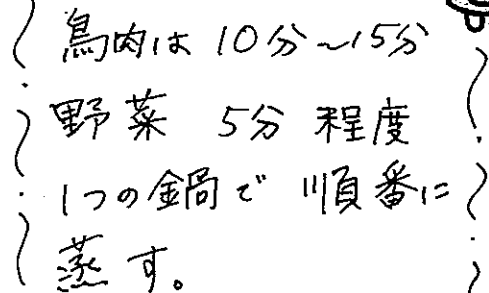 鳥肉は 10分〜15分
野菜 5分 程度
1つの鍋で 順番に
蒸す。